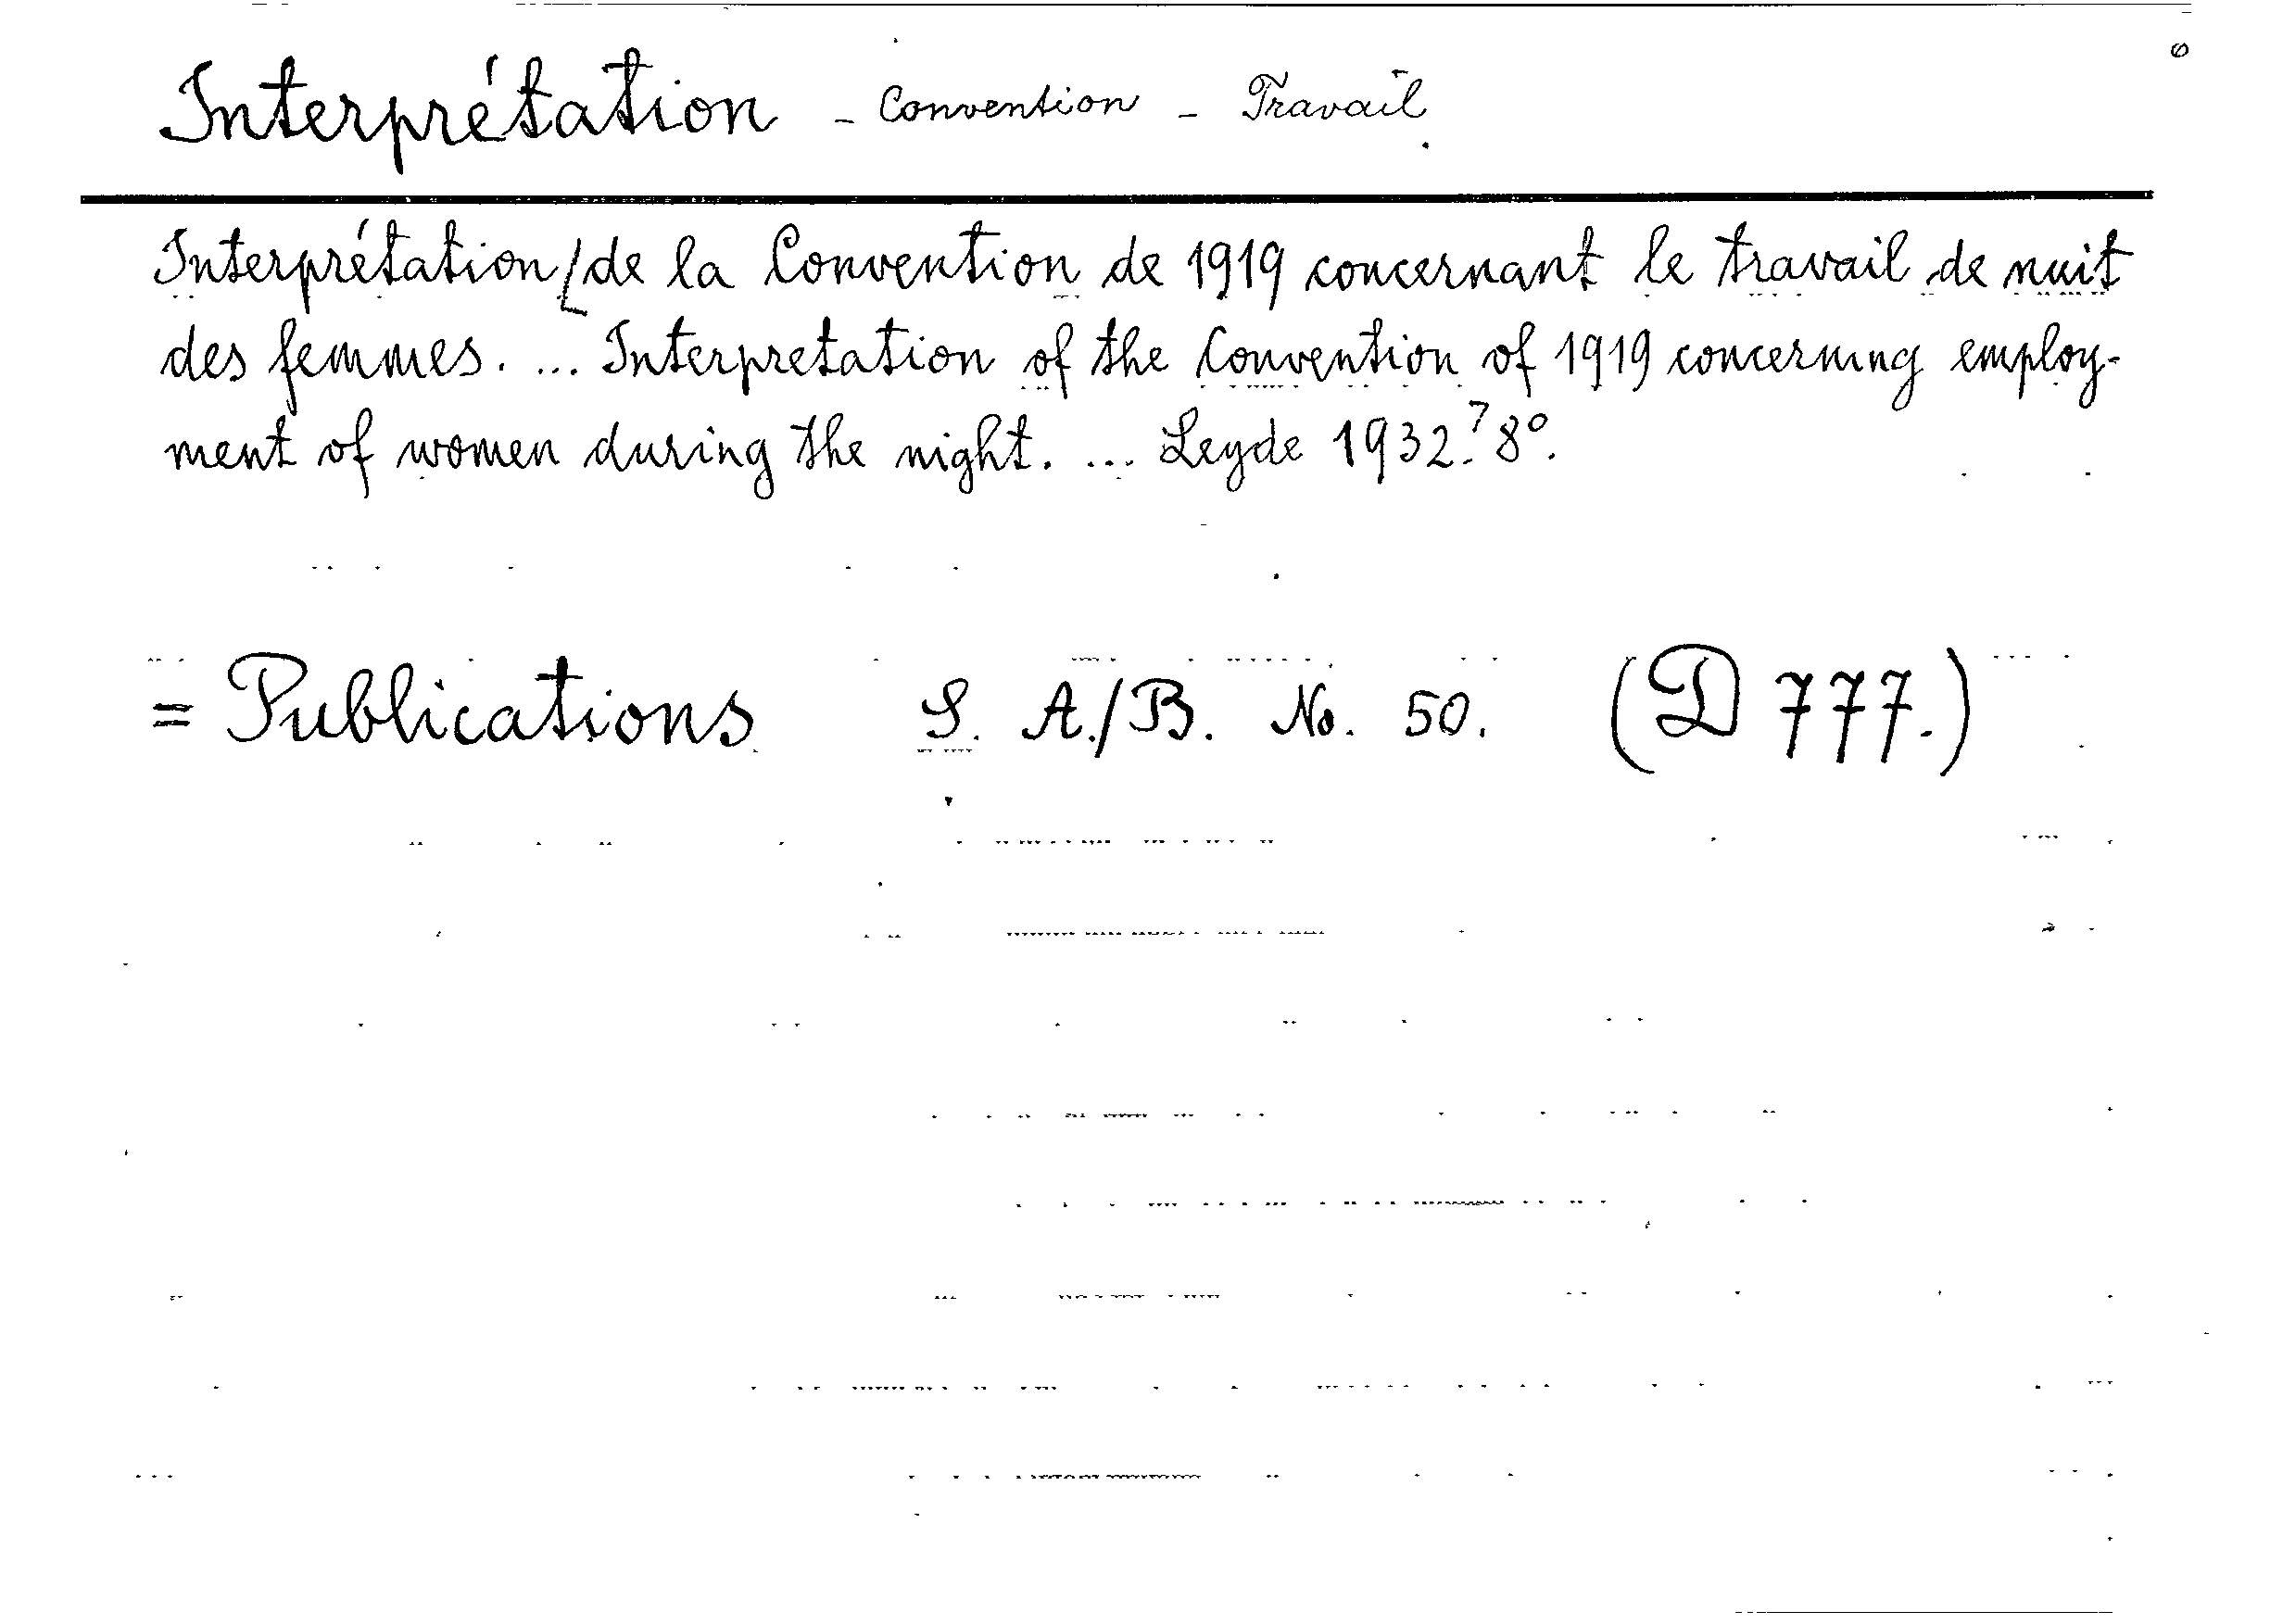 Interprétation - Convention - Travail
Interprétation [de la Convention de 1919 concernant le travail de nuit
des femmes. ... Interpretation of the Convention of 1919 concerning employ-
ment of women during the night. ... Leyde 1932. 8º.
= Publications S. A./B. No. 50. (D 777.)